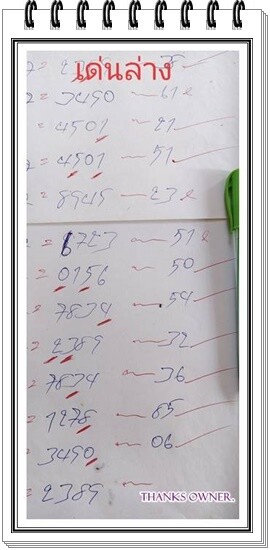 เด่นล่าง
2 = 3490 — 61 2
= 4501 — 21
2 = 4501 — 51
= 8945 — 23 2
= 6723 — 51 2
= 0156 — 50
7834 — 54
= 2389 — 32
= 7834 — 36
= 1278 — 85
3490 — 06
= 2389 —
THANKS OWNER.